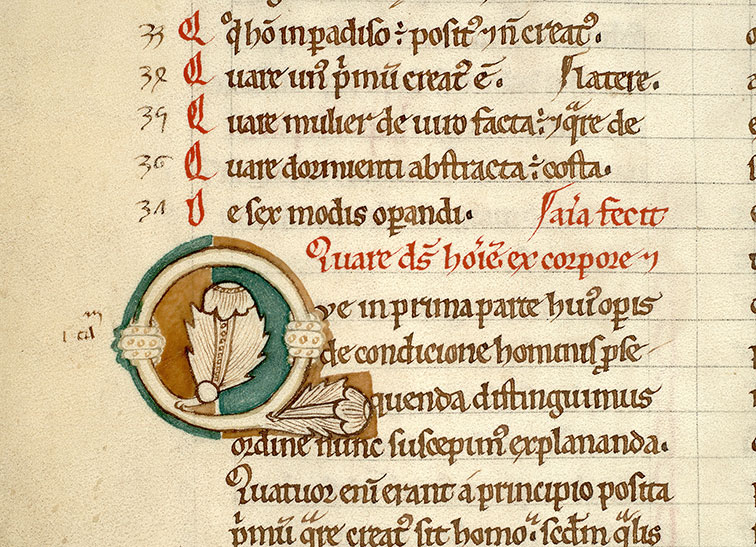 33 Q q hō in padiso ⁊ posit᷒ ⁊ n̄ creat᷒.
Quare un᷒ pʳmū creat᷒ ē. latere.
Quare mulier de uiro facta ⁊ qᷓre de
36 Quare dormienti abstracta ⁊ costa.
De sex modis opandi. aīa fecit
Quare ds̄ hoīēꝫ ex corpore ⁊
Que in prima parte hui᷒ opis
de condicione hominis pse-
quenda distinguimus
ordine nunc suscepim᷒ explananda.
Quatuor enī erant a principio posita
pʳmū qᷓre creat᷒ sit homo. scd̄m qᷓlis